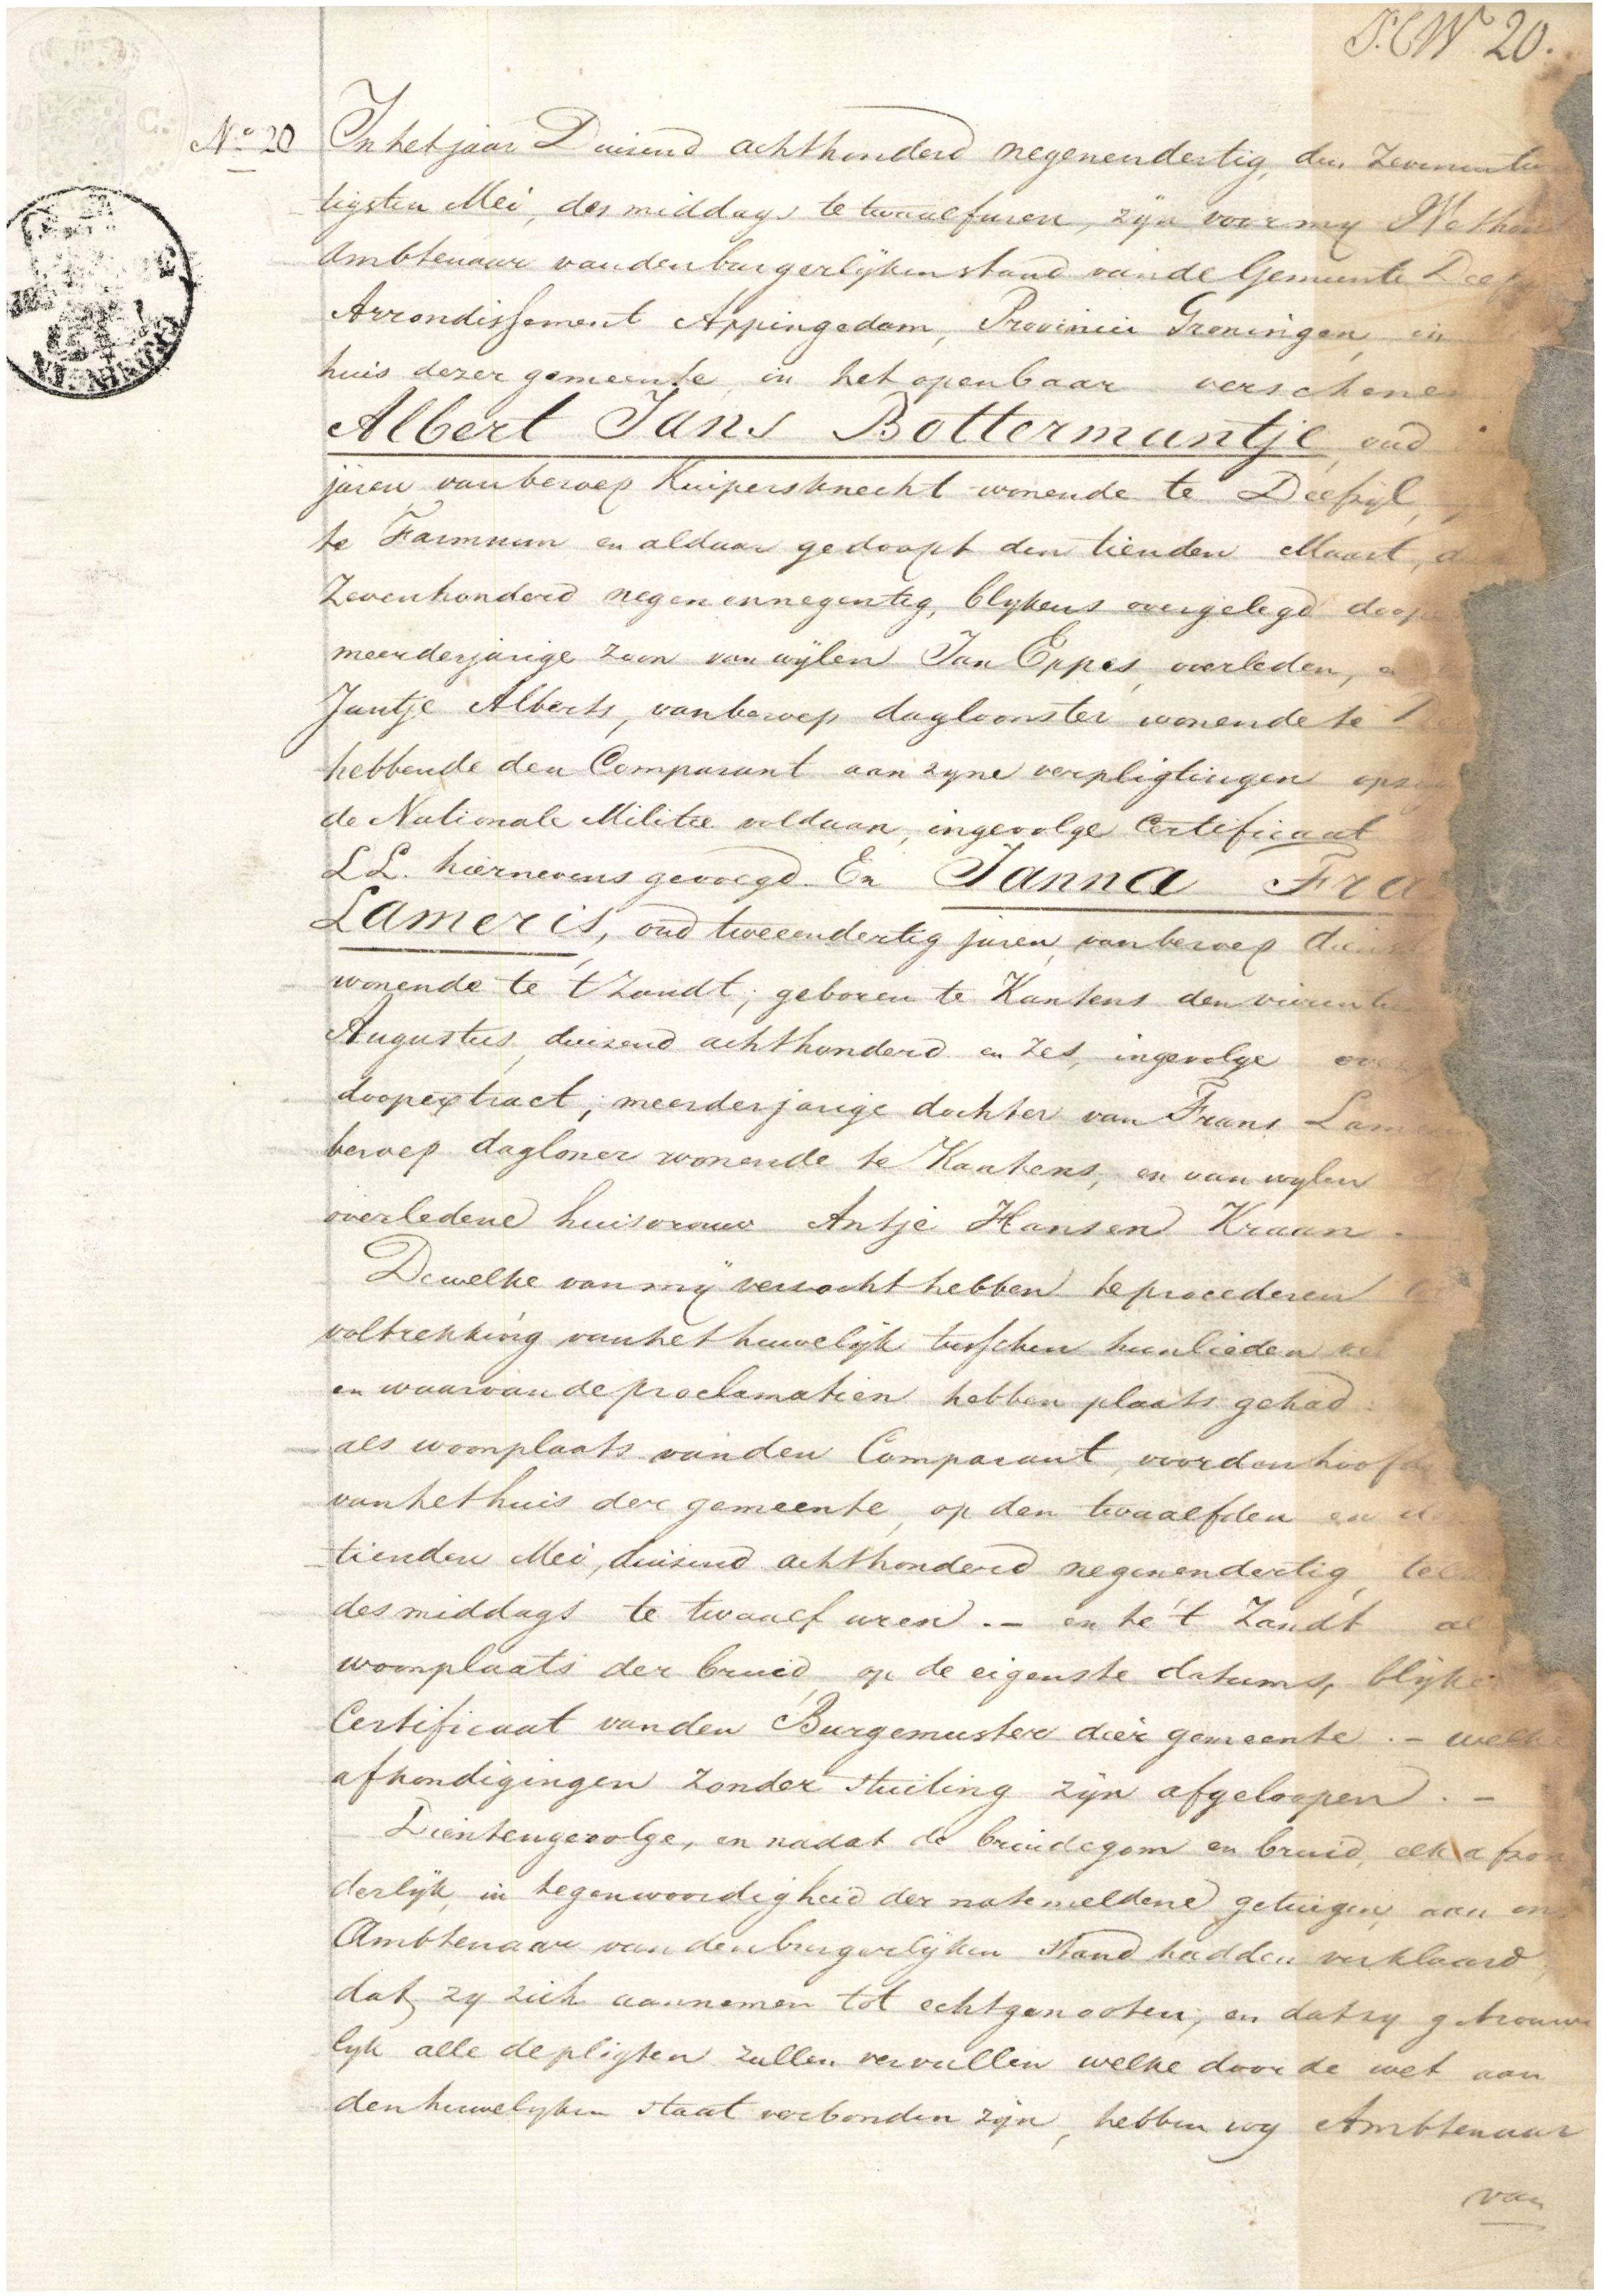 F.C.W 20.
No 20 In het jaar Duizend achthonderd negenendertig, den
tigsten Mei, des middags te twaalf uren, zijn voor my
Ambtenaar van den burgerlyken stand van de Gemeente
Arrondissement Appingedam, Provincie Groningen, in
huis dezer gemeente in het openbaar verschenen
Albert Jans Bottermuntje, oud
jaren van beroep Kuipersknecht wonende te Delfzijl,
te Farmsum en aldaar gedoopt den tienden Maart,
Zevenhonderd negen en negentig, blykens overgelegd
meerderjarige zoon van wijlen Jan Eppes, overleden,
Jantje Alberts, van beroep dagloonster wonende te
hebbende den Comparant aan zyne verpligtingen
de Nationale Militie voldaan, ingevolge Certificaat
LL. hiernevens gevoegd. En Janna
Lameris, oud tweeendertig jaren, van beroep
wonende te 't Zandt, geboren te Kantens den
Augustus, duizend achthonderd en zes, ingevolge
doopextract; meerderjarige dochter van Frans
beroep dagloner wonende te Kantens, en van wylen
overledene huisvrouw Antje Hansen Kraan
Dewelke van mij verzocht hebben te procederen
voltrekking van het huwelijk tusschen hunlieden
en waarvan de proclamatien hebben plaats gehad
als woonplaats van den Comparant, voor den
van het huis der gemeente, op den twaalfden en
tienden Mei, duizend achthonderd negenendertig,
des middags te twaalf uren. – en te 't Zandt
woonplaats der bruid, op de eigenste datums,
Certificaat van den Burgemeester dier gemeente. – welke
afkondigingen zonder stuiting zijn afgeloopen. –
Dientengevolge, en nadat de bruidegom en bruid, elk afzon
derlijk, in tegenwoordigheid der natemeldene getuigen, aan ons
Ambtenaar van den burgerlyken Stand hadden verklaard,
dat zy zich aannemen tot echtgenooten, en dat zy getrouwe
lyk alle de pligten zullen vervullen welke door de wet aan
den huwelyken staat verbonden zijn, hebben wy Ambtenaar
van